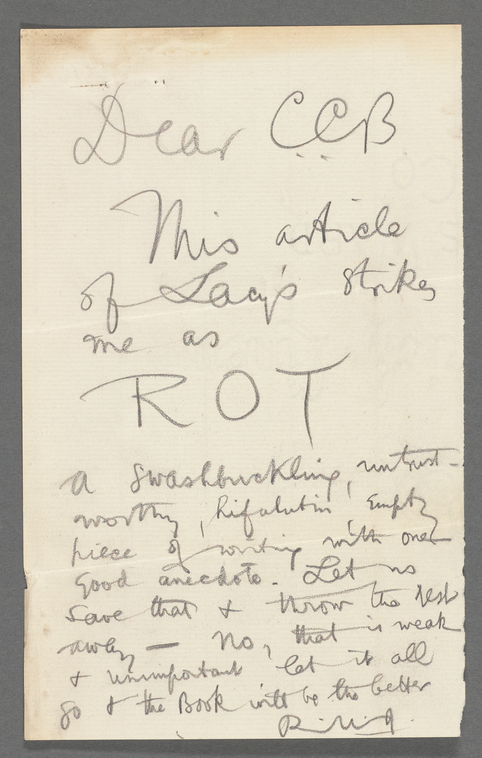 Dear CCB
This article
of Lacy's strikes
me as
ROT
a swashbuckling, untrust-
worthy, hifalutin' empty
piece of writing with one
good anecdote. Let us
save that & throw the rest
away — No, that is weak
& unimportant let it all
go & the Book will be the better